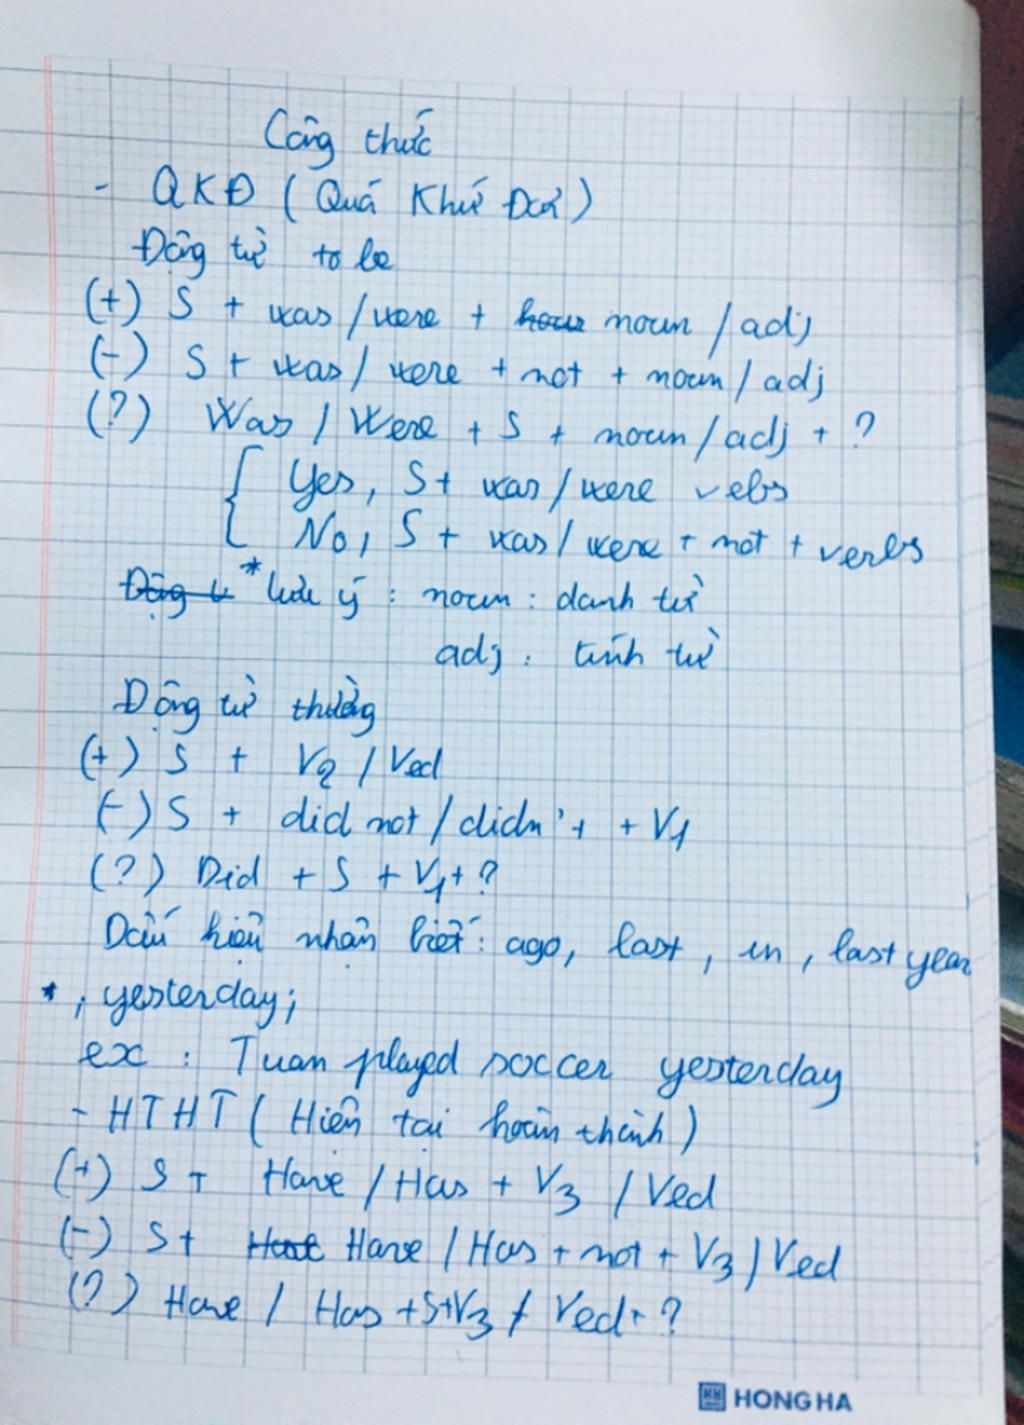 Công thức
- QKĐ (Quá Khứ Đơn)
Động từ to be
(+) S + was / were + noun / adj
(-) S + was / were + not + noun / adj
(?) Was / Were + S + noun / adj + ?
Yes, S + was / were verbs
No, S + was / were + not + verbs
* lưu ý : noun : danh từ
adj : tính từ
Động từ thường
(+) S + V2 / Ved
(-) S + did not / didn't + V1
(?) Did + S + V1 + ?
Dấu hiệu nhận biết : ago, last, in, last year
* , yesterday;
ex : Tuan played soccer yesterday
- HTHT (Hiện tại hoàn thành)
(+) S + Have / Has + V3 / Ved
(-) S + Have / Has + not + V3 / Ved
(?) Have / Has + S + V3 / Ved + ?
HONG HA